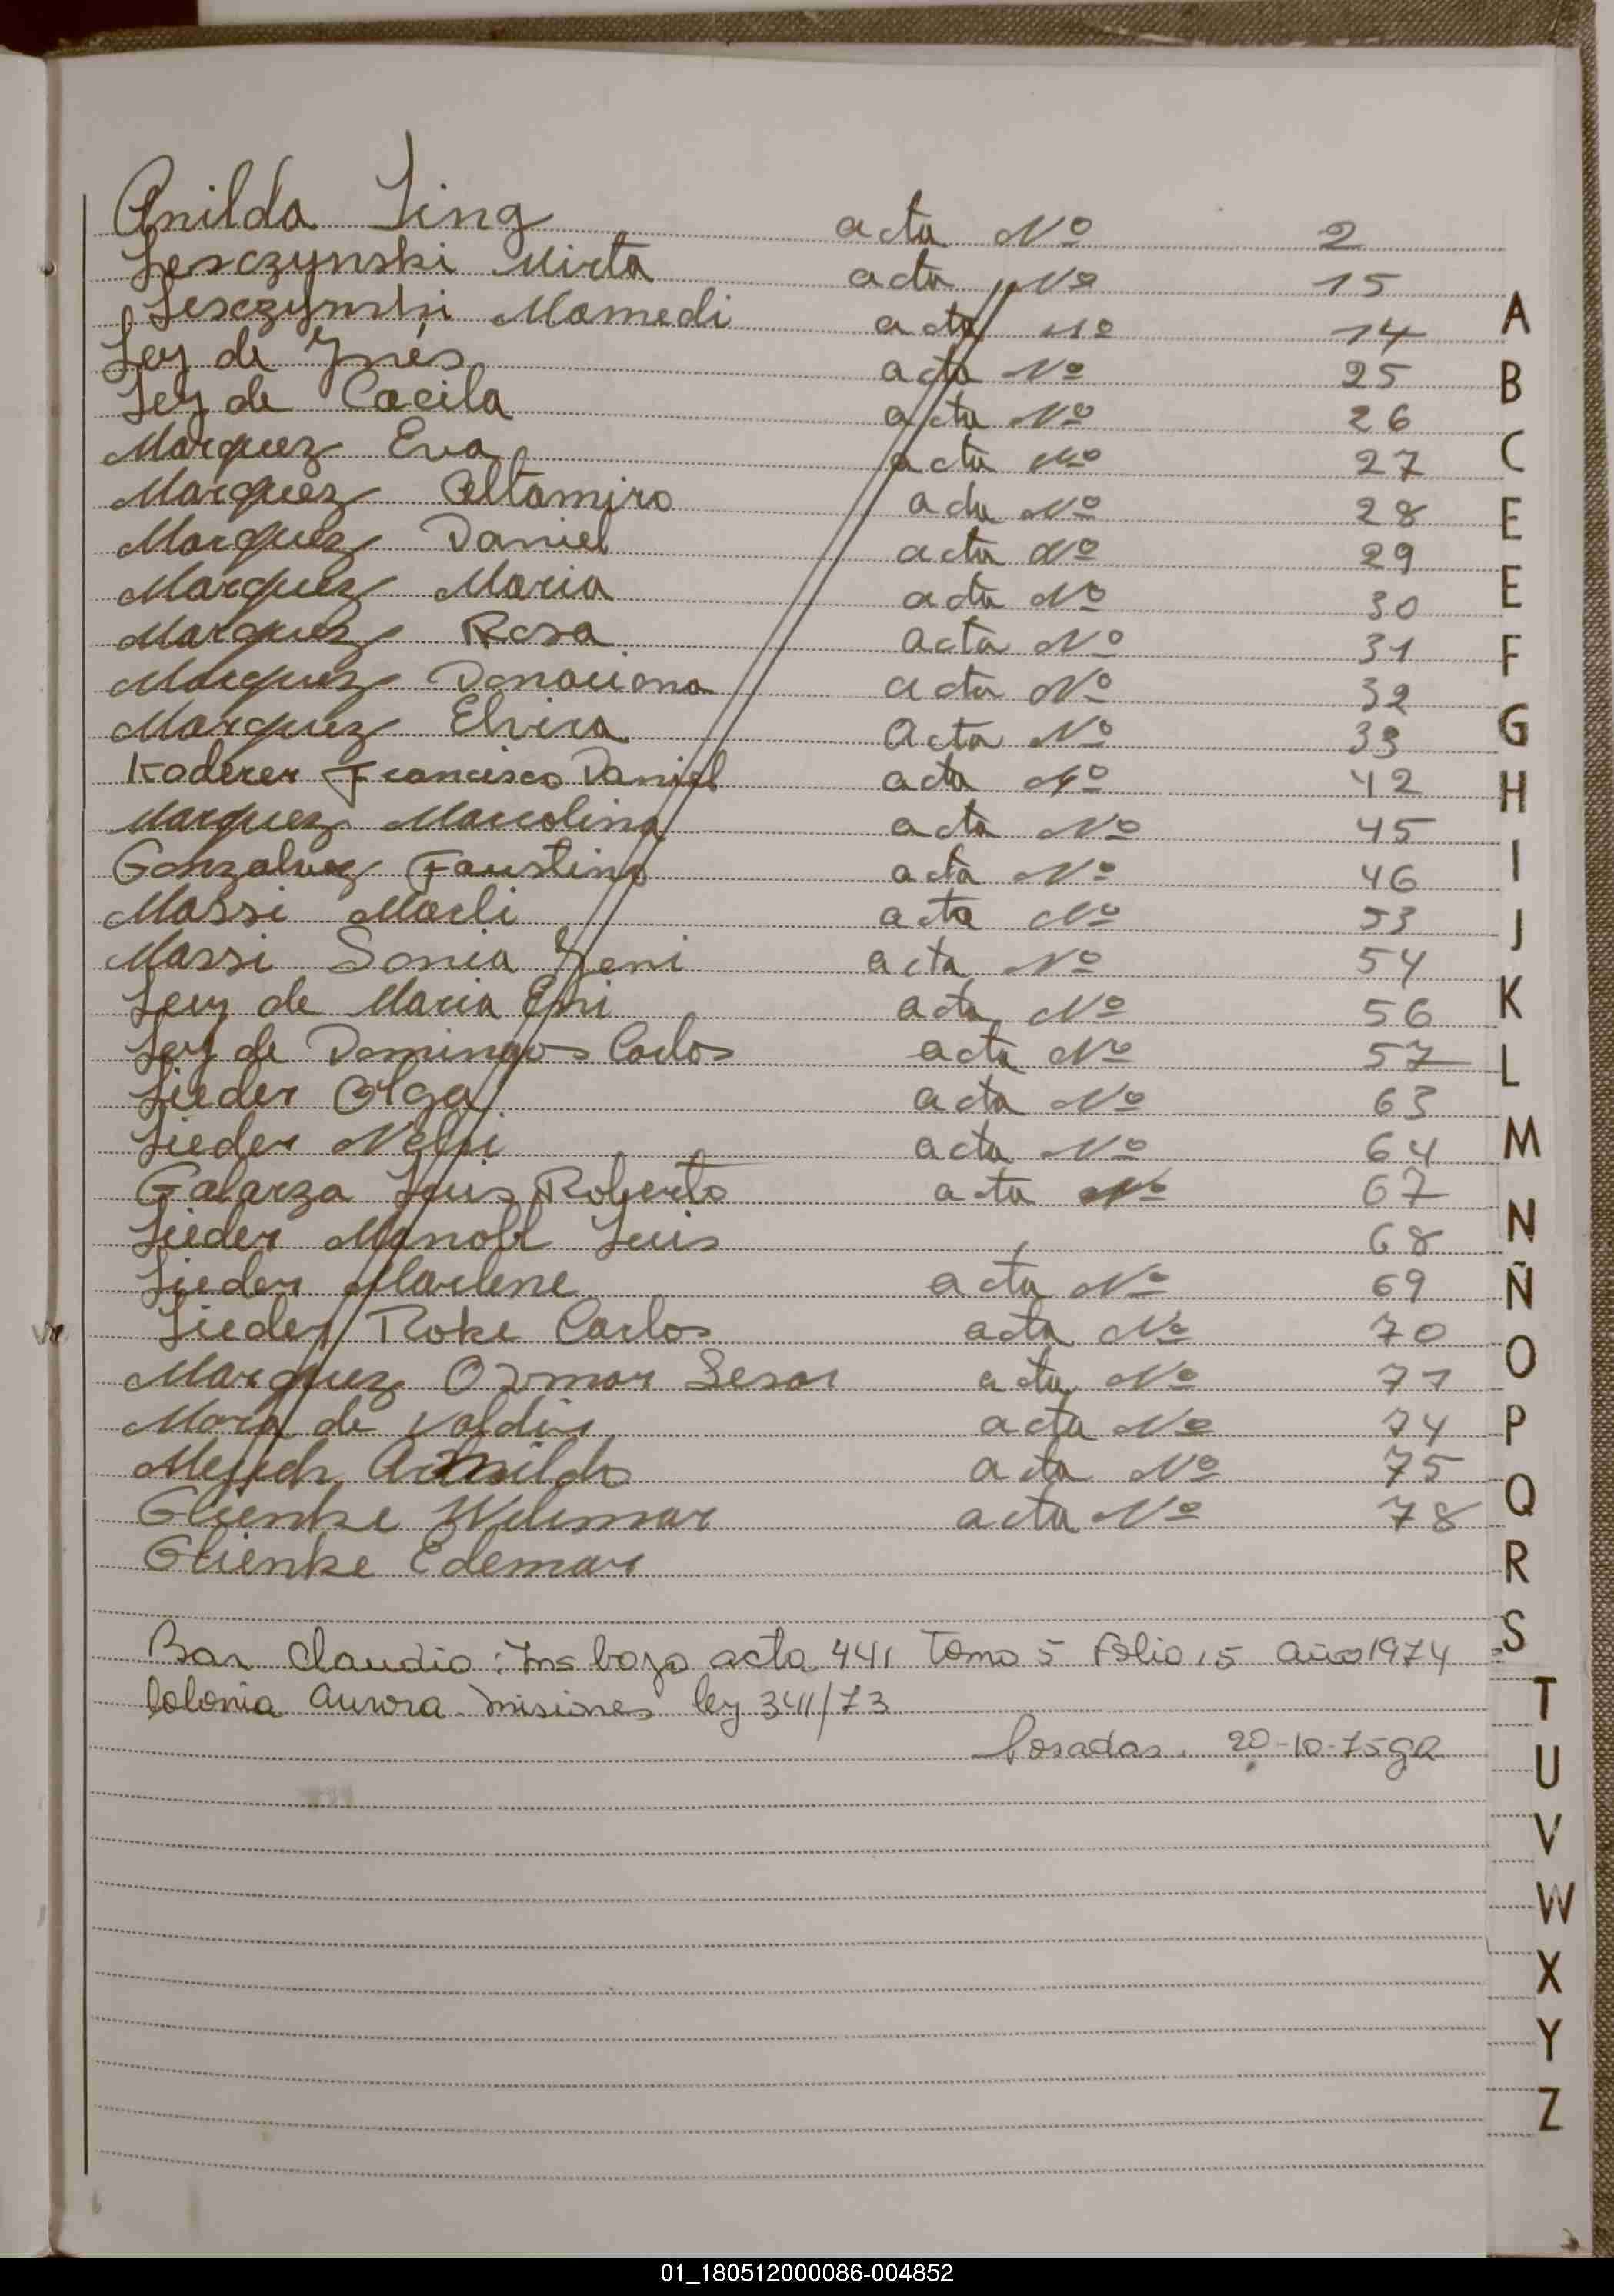 Anilda Ling acta Nº 2
Lesczynski Mirta acta Nº 15
Lesczynski Mamedi acta Nº 14
Ley de Ynés acta Nº 25
Ley de Cacila acta Nº 26
Marquez Eva acta Nº 27
Marquez Altamiro acta Nº 28
Marquez Daniel acta Nº 29
Marquez Maria acta Nº 30
Marquez Rosa acta Nº 31
Marquez Donaciona acta Nº 32
Marquez Elvira Acta Nº 33
Kaderer Francisco Daniel acta Nº 42
Marquez Marcolina acta Nº 45
Gonzalvez Faustino acta Nº 46
Massi Marli acta Nº 53
Massi Sonia Yeni acta Nº 54
Ley de Maria Eni acta Nº 56
Ley de Domingos Carlos acta Nº 57
Lieder Olga acta Nº 63
Lieder Nelsi acta Nº 64
Galarza Luis Roberto acta Nº 67
Lieder Manobl Luis 68
Lieder Marlene acta Nº 69
Lieder Roke Carlos acta Nº 70
Marquez Osmar Sesar acta Nº 71
Mora de Valdir acta Nº 74
Arnildo acta Nº 75
Glienke Wilimar acta Nº 78
Glienke Edemar
Bar Claudio: Ins bajo acta 441 Tomo 5 Folio 15 año 1974
Colonia Aurora Misiones ley 341/73
Posadas. 20-10-75
A
B
C
E
E
F
G
H
I
J
K
L
M
N
Ñ
O
P
Q
R
S
T
U
V
W
X
Y
Z
01_180512000086-004852